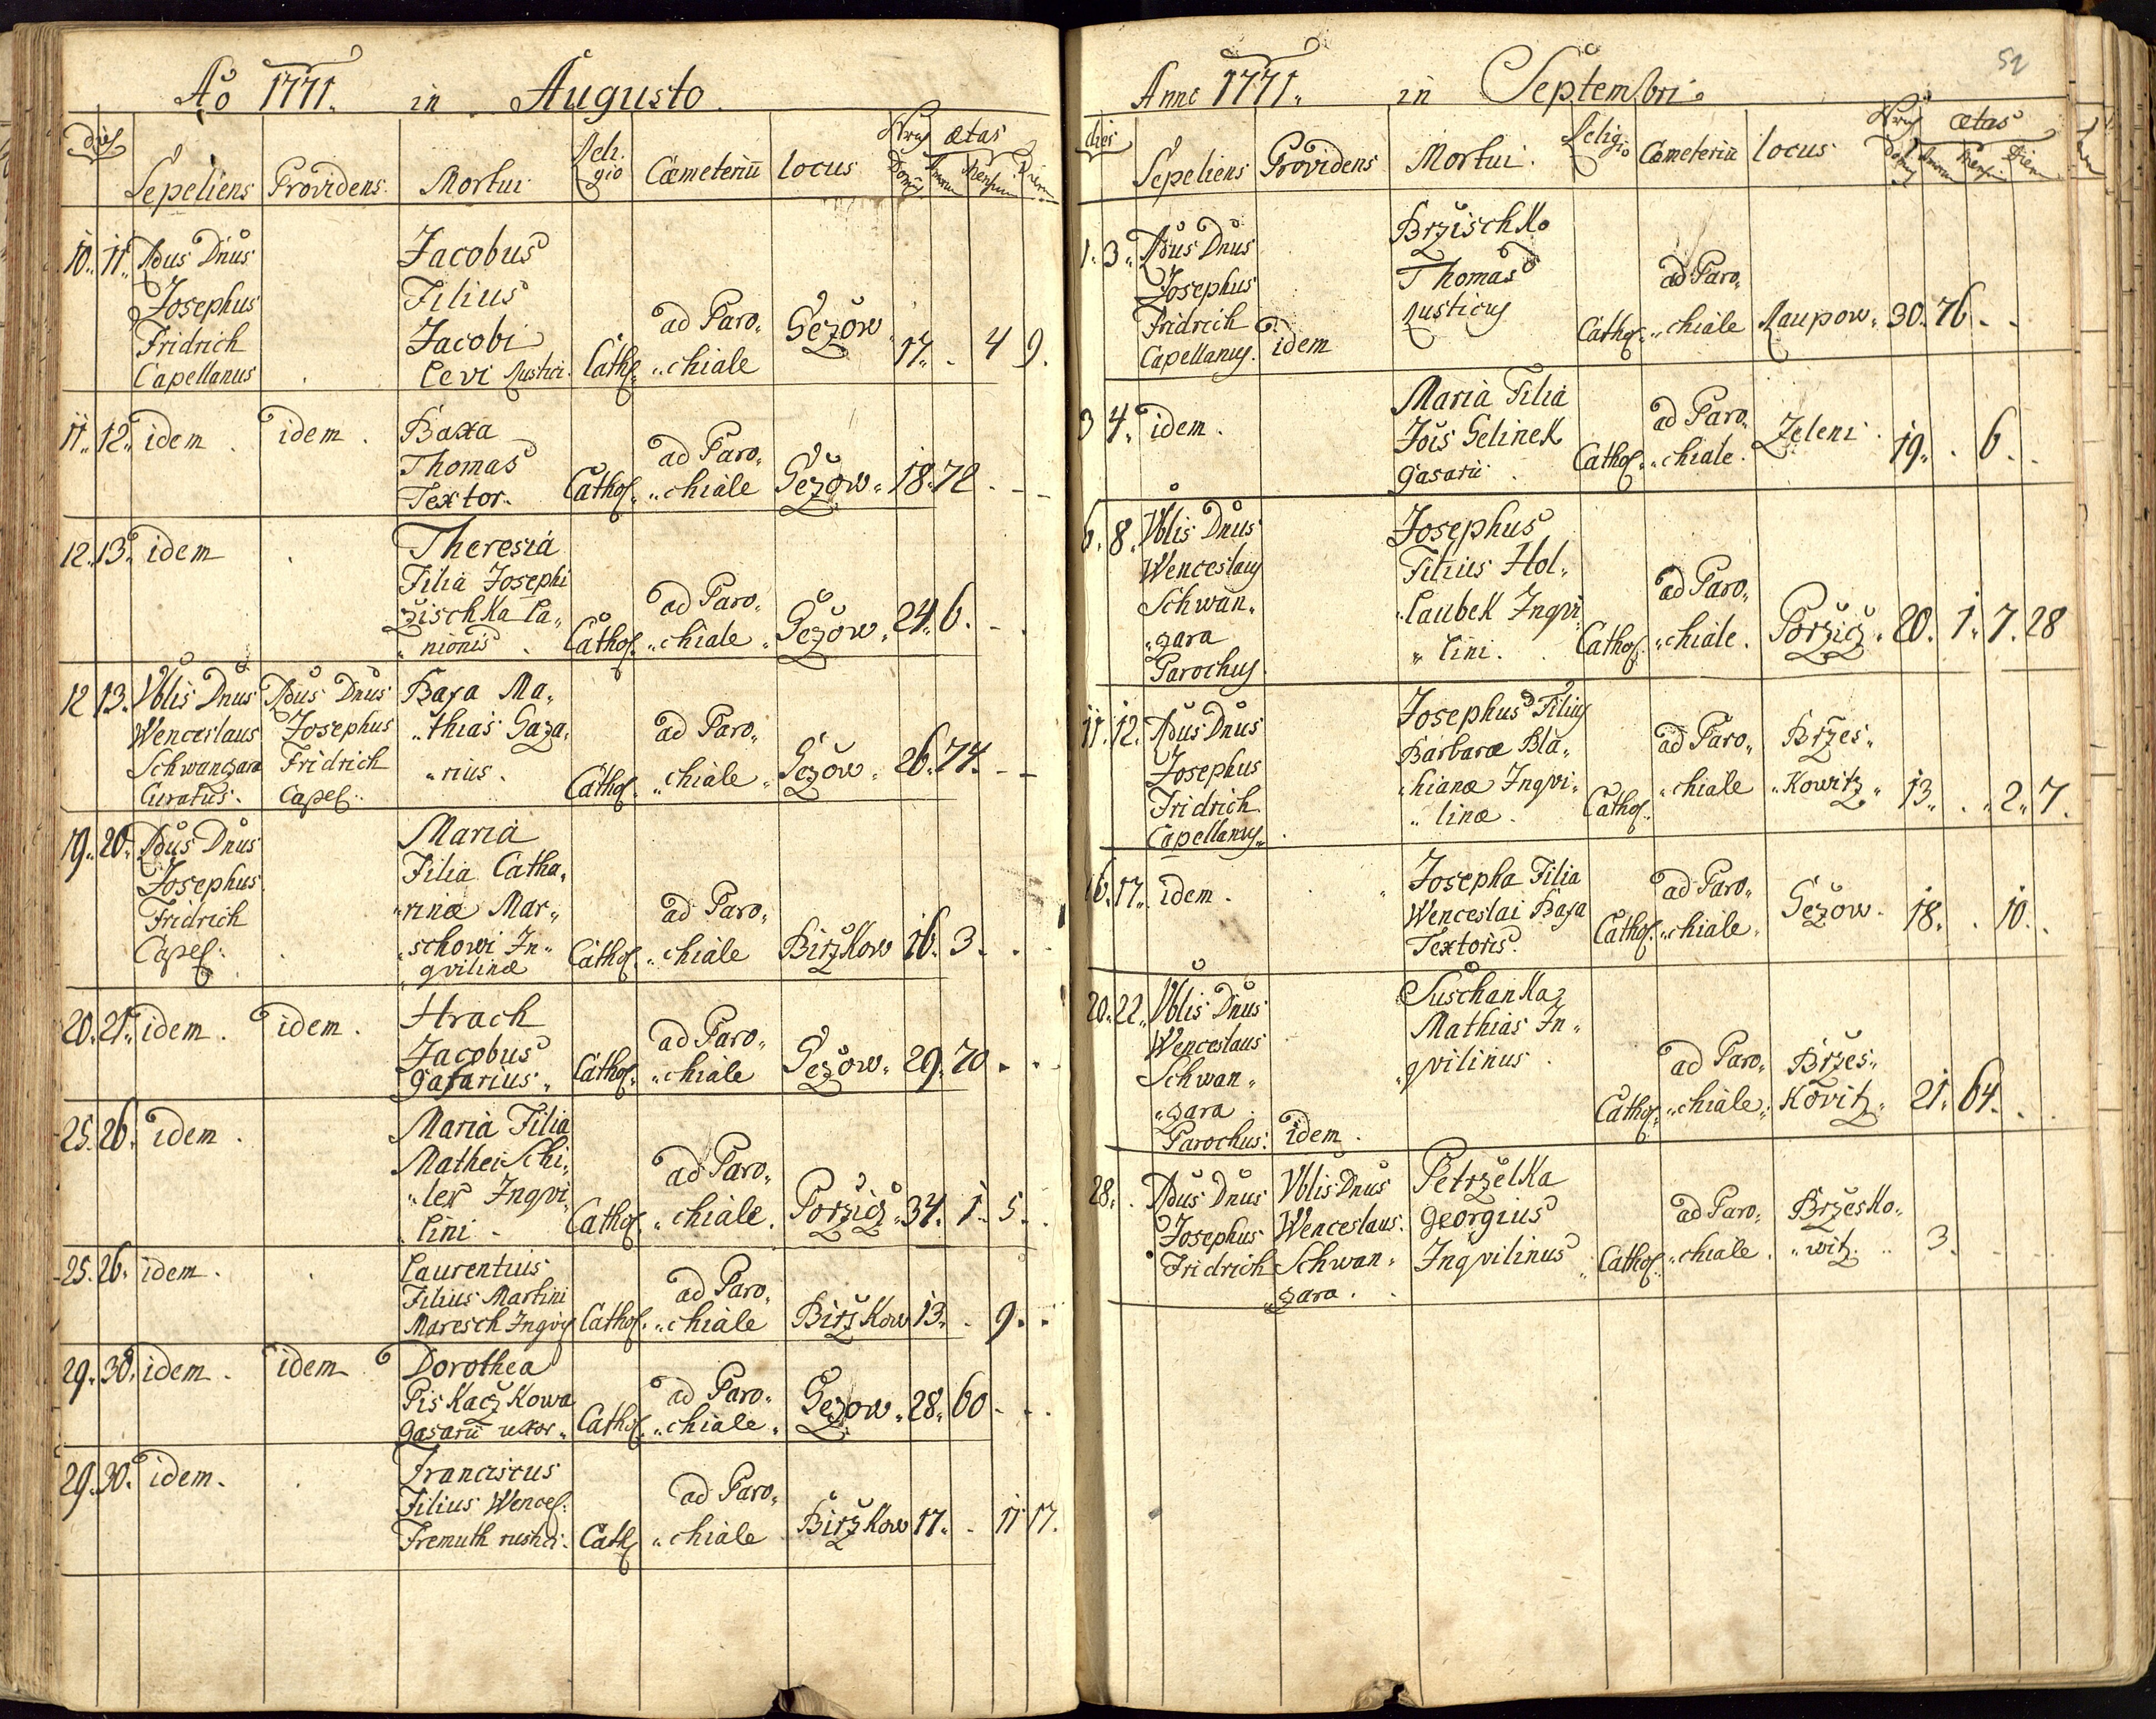 Ao 1771. in Augusto.
dies Sepeliens Providens. Mortui Reli- gio Cœmeteriu locus Nrus Domus ætas Annor Mensiu Dieru
10. 11. Adus Dnus Josephus Fridrich Capellanus
Jacobus
Filius
Jacobi
Levi Rustici. Cathol. ad Paro, „chiale Gezow 17. . 4 9.
11. 12. idem . idem . Baxa
Thomas
Textor. Cathol. ad Paro, „chiale Gezow. 18. 72 . - -
12. 13. idem . Theresia
Filia Josephi
Zischka La„
„nionis . Cathol. ad Paro, „chiale „ Gezow. 24. 6. - .
12 13. Vblis Dnus Wenceslaus Schwanzara Curatus. Adus Dnus Josephus Fridrich Capel:
Baxa Ma„
„thias Gaza„
„rius . Cathol. ad Paro, „chiale „ Gezow. 26. 74. - -
19. 20. Adus Dnus Josephus Fridrich Capel:
Maria
Filia Catha„
„rinæ Mar„
„schowi In„
„qvilinæ Cathol. ad Paro, „chiale Birzkow 16. 3. .
20. 21. idem . idem . Hrach
Jacobus
Gasarius „ Cathol. ad Paro, „chiale Gezow. 29. 70 . .
25. 26. idem . Maria Filia
Mathei Schi„
„ler Inqvi„
lini . Cathol. ad Paro, „chiale. Porzicz. 34. 1. 5. .
25. 26. idem . Laurentius
Filius Martini
Maresch Inqvi Cathol. ad Paro, „chiale Birzkow 13. . 9. .
29. 30. idem . idem Dorothea
Piskaczkowa
Gasarii uxor „ Cathol. ad Paro, „chiale „ Gezow. 28. 60 . .
29. 30. idem. Franciscus
Filius Wencel:
Fremuth rustici. Cath ad Paro, „chiale Birzkow 17. . 11 17.
52
Anno 1771. in Septembri.
dies Sepeliens Providens Mortui. Religio Cœmeteriu locus Nrus Domus ætas Annoru Mensiu Dieru
1. 3. Adus Dnus Josephus Fridrich Capellanus. idem
Brzischka
Thomas
Rusticus Cathol. ad Paro, „chiale Raupow. 30. 76 . .
3 4. idem . Maria Filia
Jois Gelinek
Gasarii . Cathol. ad Paro, „chiale. Zeleni . 19. . 6. .
6. 8. Vblis Dnus Wenceslaus Schwan„ „zara Parochus.
Josephus
Filius Hol„
„laubek Inqvi
„lini. . Cathol. ad Paro, „chiale. Porzicz. 20. 1. 7. 28
11. 12. Adus Dnus Josephus Fridrich Capellanus.
Josephus Filius
Barbaræ Bla„
„hianæ Inqvi„
„linæ . Cathol. ad Paro, „chiale Brzes„ „kowitz „ 13. . 2. 7.
16. 17. idem . Josepha Filia
Wenceslai Baxa
Textoris. Cathol. ad Paro, „chiale. Gezow. 18. . 10. .
20. 22. Vblis Dnus Wenceslaus Schwan„ „zara Parochus: idem .
Suschanka
Mathias In„
„qvilinus . Cathol. ad Paro, „chiale. Brzes„ kovitz. 21. 64. . .
28. . Adus Dnus Josephus Fridrich Vblis Dnus Wenceslaus. Schwan„ „zara .
Petrzelka
Georgius
Inqvilinus Cathol. ad Paro, „chiale . Brzesko„ „witz. 3. - -